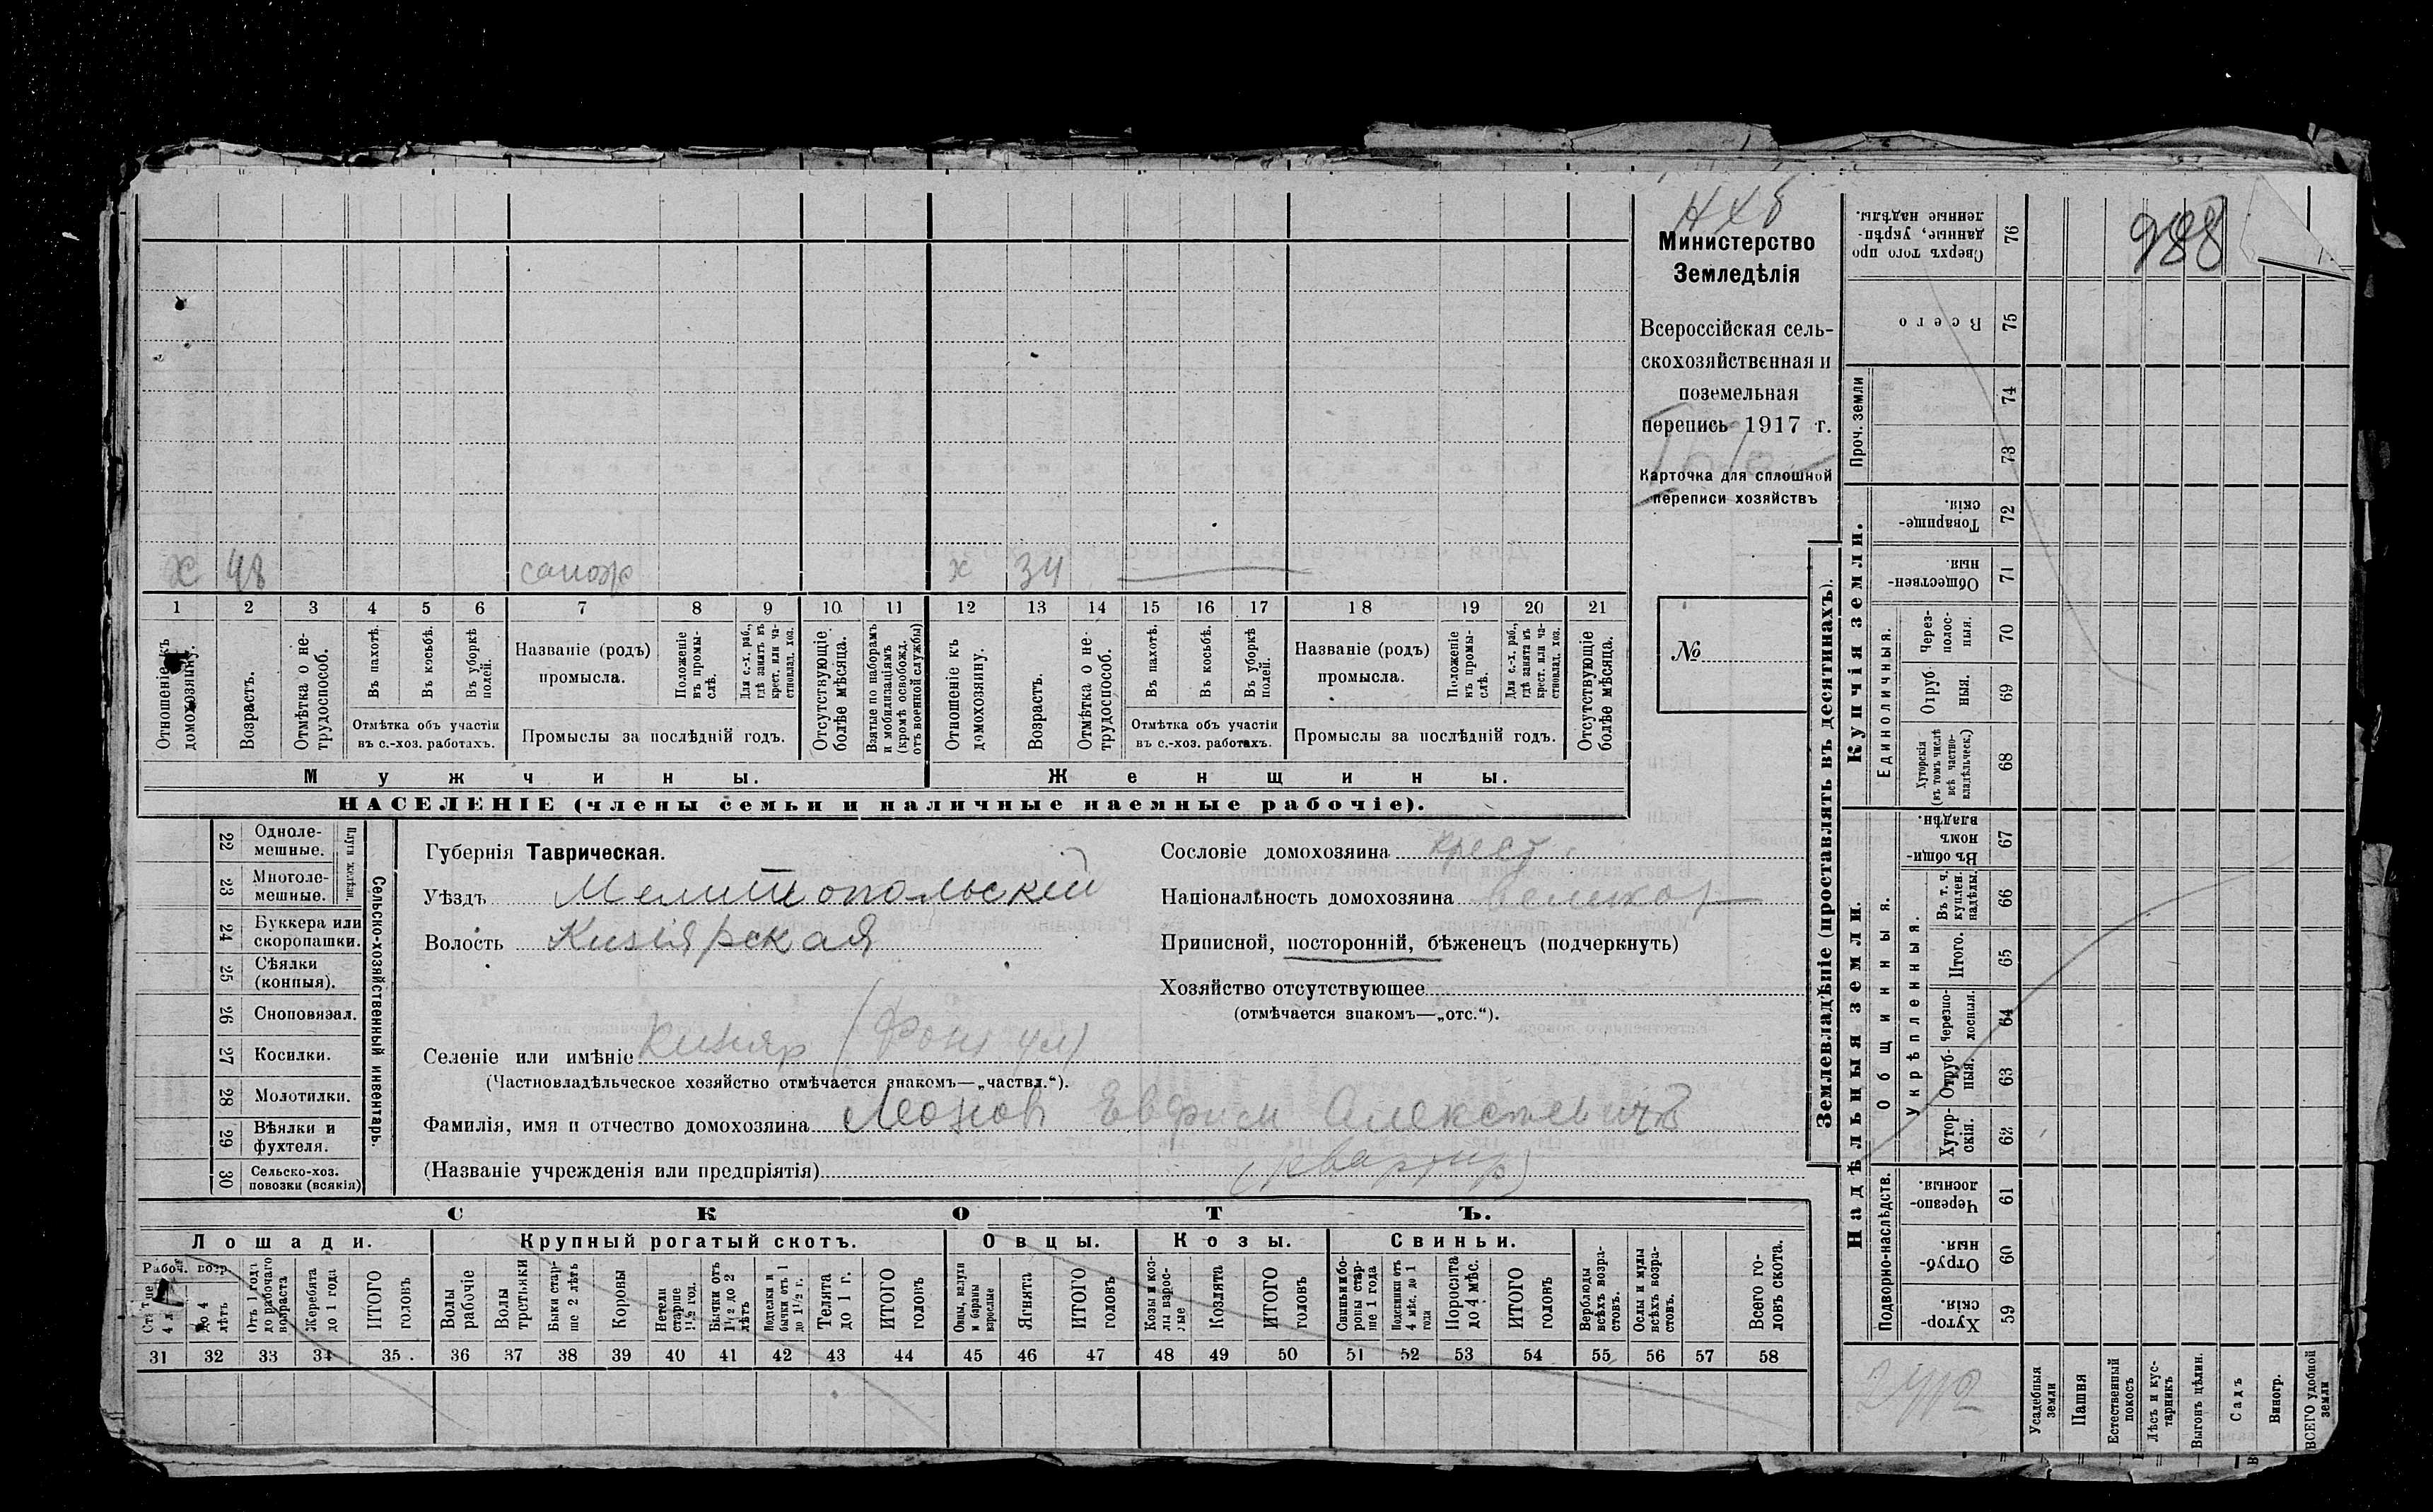 988
Министерство
Земледѣлія
Всероссійская сель-
скохозяйственная и
поземельная
перепись 1917 г.
Карточка для сплошной
переписи хозяйствъ
№
х 48 сапож х 34
1 2 3 4 5 6 7 8 9 10 11 12 13 14 15 16 17 18 19 20 21
Отношеніе къ домохозяину.
Возрастъ.
Отмѣтка о не-трудоспособ.
Въ пахотѣ.
Въ косьбѣ.
Въ уборкѣ полей.
Отмѣтка объ участіи
въ с.-хоз. работахъ.
Названіе (родъ)
промысла.
Положеніе въ промы-слѣ.
Для с.-х. раб., гдѣ занятъ въ крест. или ча-стновлад. хоз.
Промыслы за послѣдній годъ.
Отсутствующіе болѣе мѣсяца.
Взятые по наборамъ и мобилизаціямъ (кромѣ освобожд. отъ военной службы)
Отношеніе къ домохозяину.
Возрастъ.
Отмѣтка о не-трудоспособ.
Въ пахотѣ.
Въ косьбѣ.
Въ уборкѣ полей.
Отмѣтка объ участіи
въ с.-хоз. работахъ.
Названіе (родъ)
промысла.
Положеніе въ промы-слѣ.
Для с.-х. раб., гдѣ занята въ крест. или ча-стновлад. хоз.
Промыслы за послѣдній годъ.
Отсутствующіе болѣе мѣсяца.
Мужчины. Женщины.
НАСЕЛЕНІЕ (члены семьи и наличные наемные рабочіе).
22 Одноле-мешные.
23 Многоле-мешные.
24 Буккера или скоропашки.
25 Сѣялки (конныя).
26 Сноповязал.
27 Косилки.
28 Молотилки.
29 Вѣялки и фухтеля.
30 Сельско-хоз. повозки (всякія)
Сельско-хозяйственный инвентарь.
Губернія Таврическая.
Уѣздъ Мелитопольскій
Волость Кизіярская
Сословіе домохозяина крест.
Національность домохозяина великор
Приписной, посторонній, бѣженецъ (подчеркнуть)
Хозяйство отсутствующее
(отмѣчается знакомъ—„отс.“).
Селеніе или имѣніе Кизіяр
(Частновладѣльческое хозяйство отмѣчается знакомъ—„частвл.“).
Фамилія, имя и отчество домохозяина Евфим Алексѣевичъ
(Названіе учрежденія или предпріятія) (квартир)
СКОТЪ.
Лошади. Крупный рогатый скотъ. Овцы. Козы. Свиньи.
Рабоч. возр.
до 4 лѣтъ
Отъ 1 года до рабочаго возраста
Жеребята до 1 года
ИТОГО головъ
Волы рабочіе
Волы третьяки
Быки стар-ше 2 лѣтъ
Коровы
Нетели старше 1½ год.
Бычки отъ 1½ до 2 лѣтъ
Подтелки и бычки отъ 1 до 1½ г.
Телята до 1 г.
ИТОГО головъ
Овцы, валухи и бараны взрослые
Ягнята
ИТОГО головъ
Козы и коз-лы взрос-лые
Козлята
ИТОГО головъ
Свиньи и бо-ровы стар-ше 1 года
Подсвинки отъ 4 мѣс. до 1 года
Поросята до 4 мѣс.
ИТОГО головъ
Верблюды всѣхъ возра-стовъ.
Ослы и мулы всѣхъ возра-стовъ.
Всего го-ловъ скота.
31 32 33 34 35 36 37 38 39 40 41 42 43 44 45 46 47 48 49 50 51 52 53 54 55 56 57 58
Землевладѣніе (проставлять въ десятинахъ).
Купчія земли.
Надѣльныя земли.
Сверхъ того про-данные, укрѣп-ленные надѣлы. 76
Всего 75
Проч. земли 74
73
Товарище-скія. 72
Обществен-ныя. 71
Единоличныя.
Через-полос-ныя. 70
Отруб-ныя. 69
Хуторскія (въ томъ числѣ всѣ частно-владѣльческ.) 68
Общинныя.
Въ общин-номъ владѣн. 67
Укрѣпленныя.
Въ т. ч. куплен. надѣлы. 66
Итого. 65
Черезпо-лосныя. 64
Отруб-ныя. 63
Хутор-скія. 62
Подворно-наслѣдств.
Черезпо-лосныя. 61
Отруб-ныя. 60
Хутор-скія. 59
Усадебныя земли
Пашня
Естественный покосъ
Лѣсъ и кус-тарникъ
Выгонъ цѣлин.
Садъ
Виногр.
ВСЕГО удобной земли